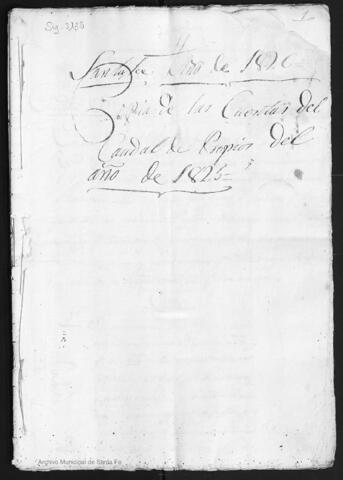 Sg-3135
1
Santa Fe Año de 1826
Copia de las Cuentas del
Caudal de Propios del
año de 1825=
Archivo Municipal de Santa Fe